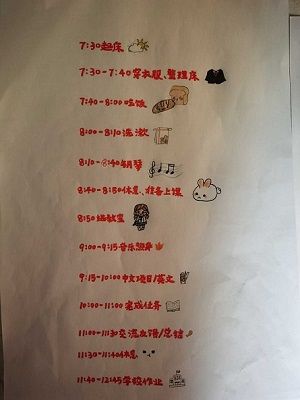 7:30起床
7:30-7:40穿衣服、整理床
7:40-8:00吃饭
8:00-8:10洗漱
8:10-8:40钢琴
8:40-8:50休息、准备上课
8:50进教室
9:00-9:15音乐
9:15-10:00中文项目/英文
10:00-11:00完成任务
11:00-11:30交流反馈/总结
11:30-11:40休息
11:40-12:45学校作业